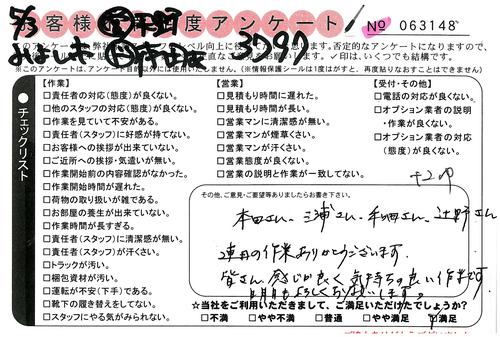 お客様満足度アンケート
No 063148
5/3
3797
※このアンケートは、アンケート目的以外には使用いたしません。(※情報保護シールは1度はがすと、再度貼りなおすことはできません。)
チェックリスト
【作業】
□責任者の対応(態度)が良くない。
□他のスタッフの対応(態度)が良くない。
□作業を見ていて不安がある。
□責任者(スタッフ)に好感が持てない。
□お客様への挨拶が出来ていない。
□ご近所への挨拶・気遣いが無い。
□作業開始前の内容確認がなかった。
□作業開始時間が遅れた。
□荷物の取り扱いが雑である。
□お部屋の養生が出来ていない。
□作業時間が長すぎる。
□責任者(スタッフ)に清潔感が無い。
□責任者(スタッフ)が汗くさい。
□トラックが汚い。
□梱包資材が汚い。
□運転が不安(下手)である。
□靴下の履き替えをしてない。
□スタッフにやる気がみられない。
【営業】
□見積もり時間に遅れた。
□見積もり時間が長い。
□営業マンに清潔感が無い。
□営業マンが煙草くさい。
□営業マンが汗くさい。
□営業態度が良くない。
□営業の説明と作業が一致してない。
【受付・その他】
□電話の対応が良くない。
□オプション業者の説明
・作業が良くない。
□オプション業者の対応
(態度)が良くない。
その他、ご意見・ご要望等ありましたらお書き下さい。
本田さん、三浦さん、和田さん、辻野さん
連日の作業ありがとうございます。
皆さん、感じが良く気持ちの良い作業です。
明日もよろしくお願いします。
☆当社をご利用いただきまして、ご満足いただけたでしょうか?
□不満 □やや不満 □普通 □やや満足 □満足